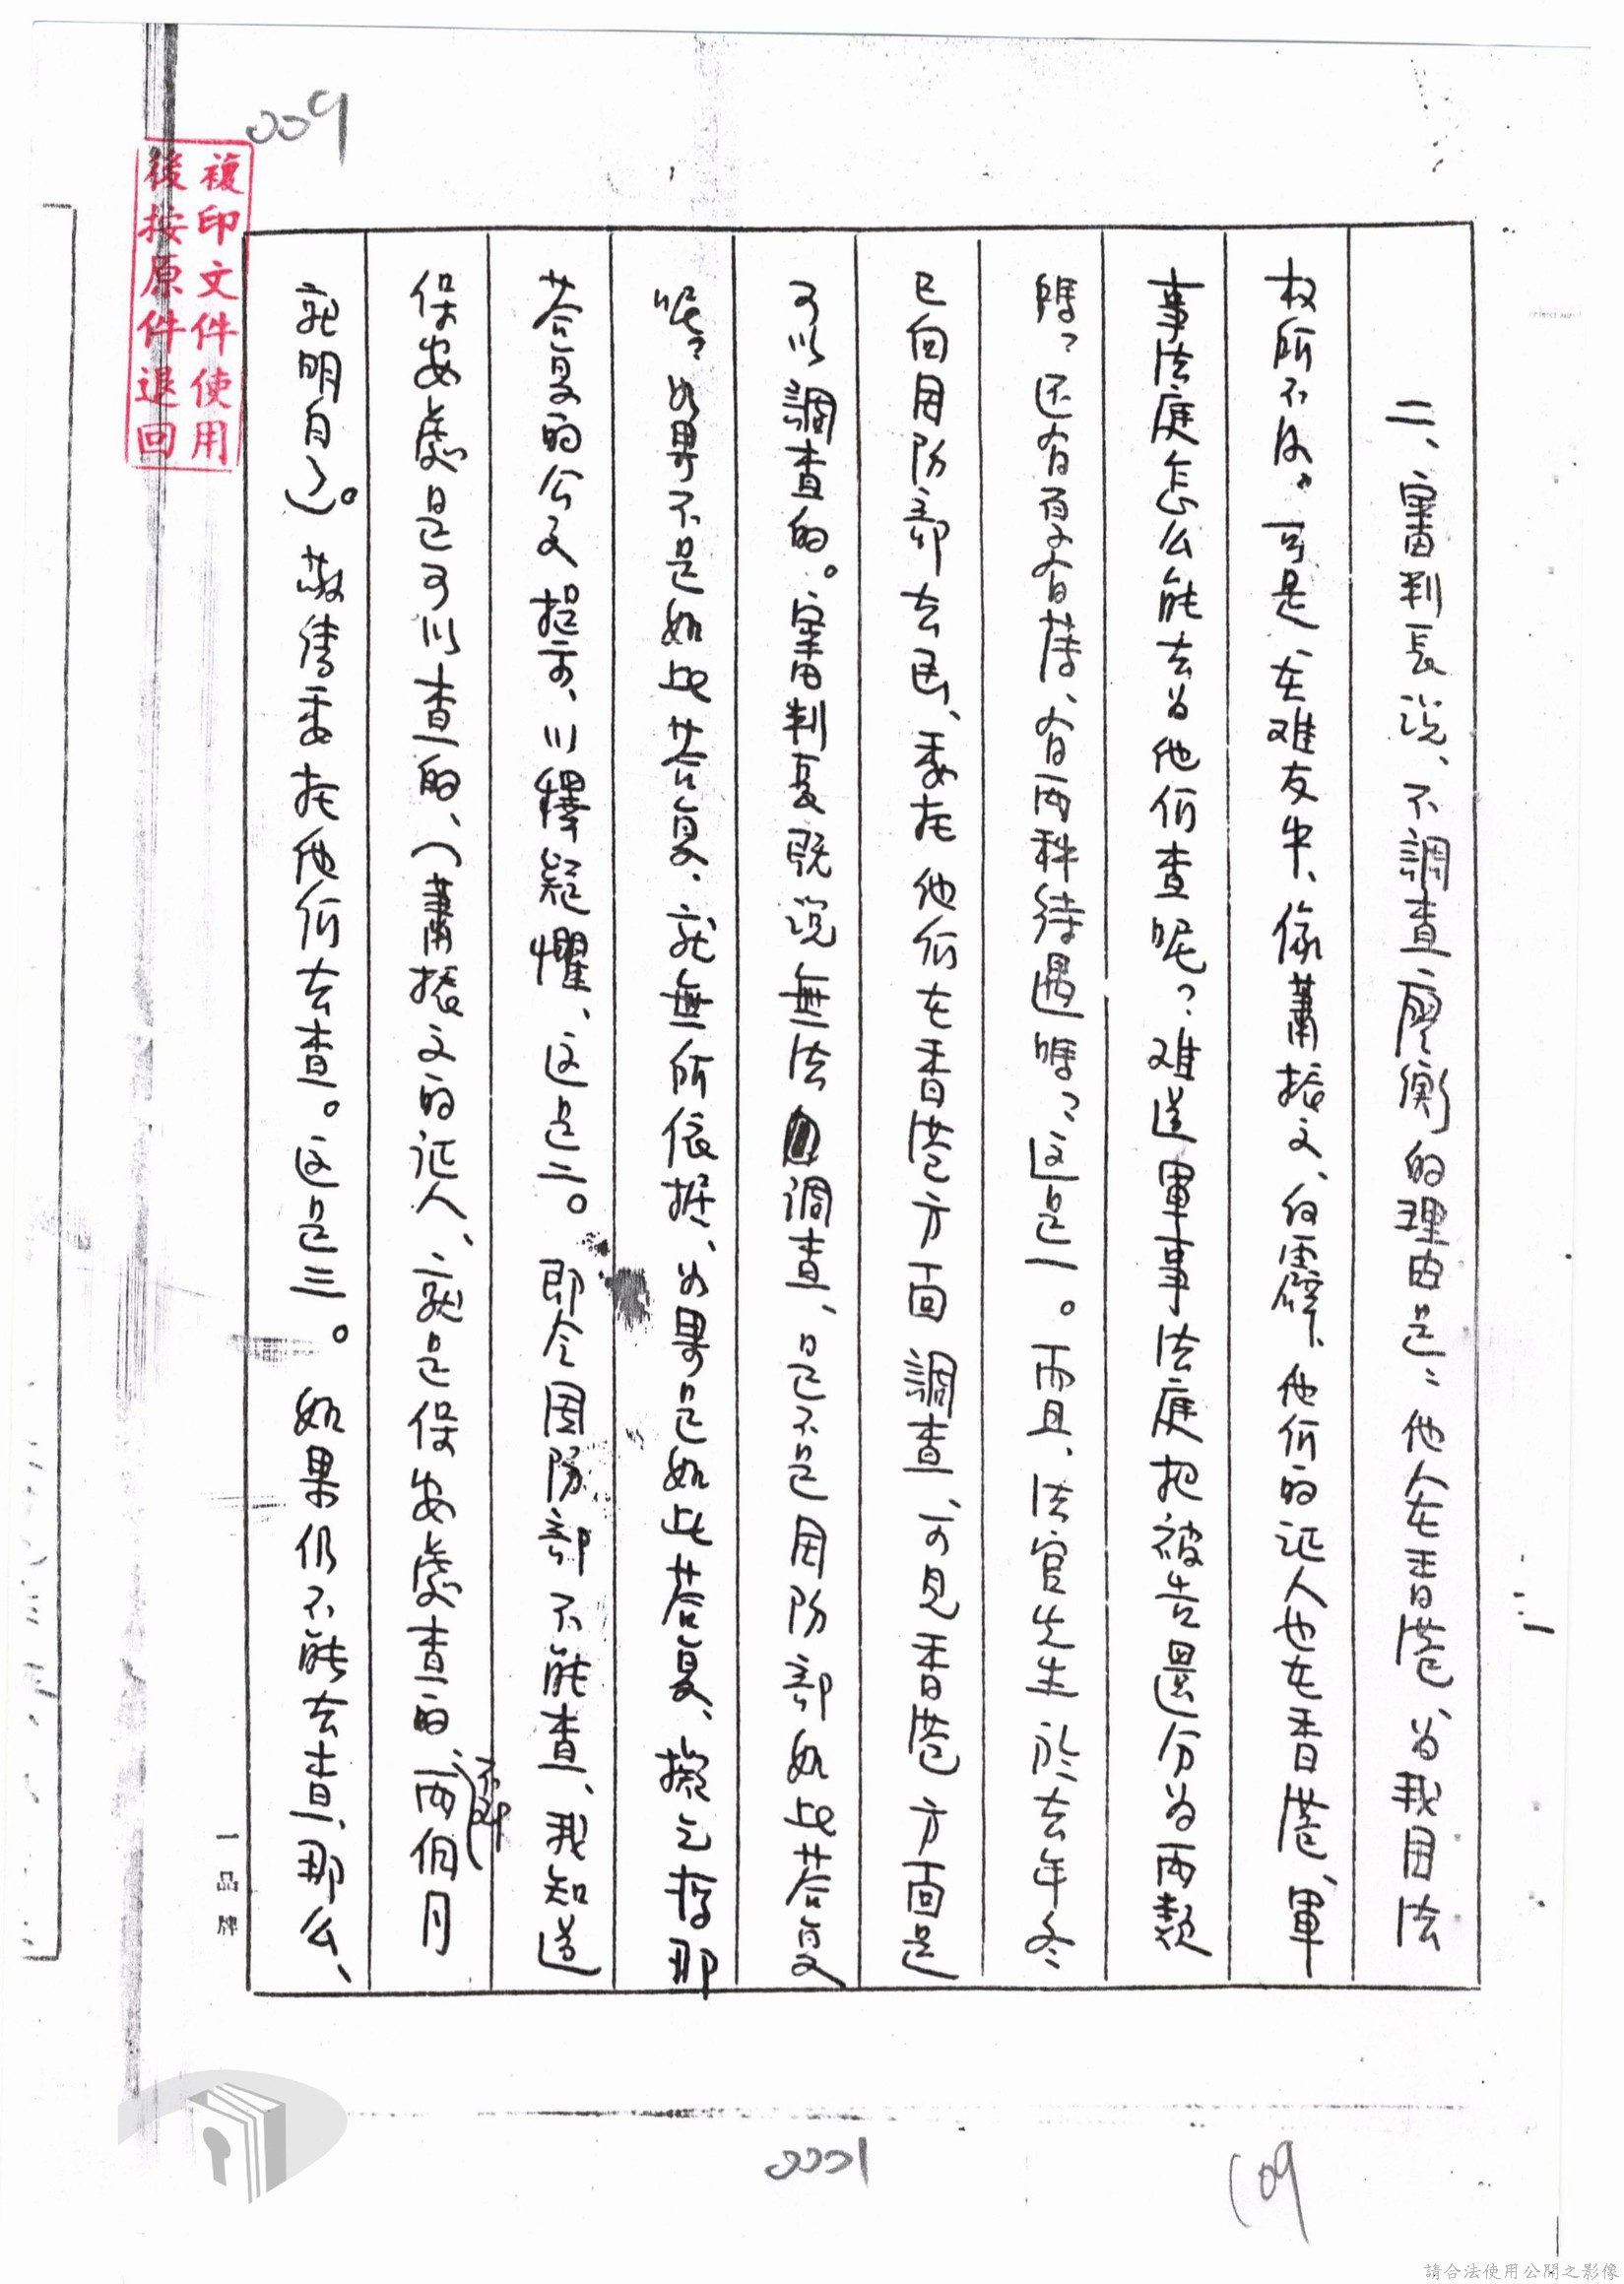 009
複印文件使用
後按原件退回
二、審判長说、不調查廖衡的理由是：他人在香港、为我国法
权所不及。可是、在难友中、像蕭振文、白霹、他们的证人也在香港、軍
事法庭怎么能去为他们查呢？难道軍事法庭把被告還分为兩類
嗎？还有厚有薄、有兩种待遇嗎？这是一。而且、法官先生於去年冬
已向国防部去函、委托他们在香港方面調查、可見香港方面是
可以調查的。審判長既说無法調查、是不是国防部如此荅复
呢？如果不是如此荅复、就無所依据、如果是如此荅复、擬乞将那
荅复的公文提示、以釋疑懼、这是二。即令国防部不能查、我知道
保安處是可以查的、（蕭振文的证人、就是保安處查的、兩個月
就明白了。敬請委托他们去查。这是三。如果仍不能去查、那么、
一品牌
二
0001
109
請合法使用公開之影像